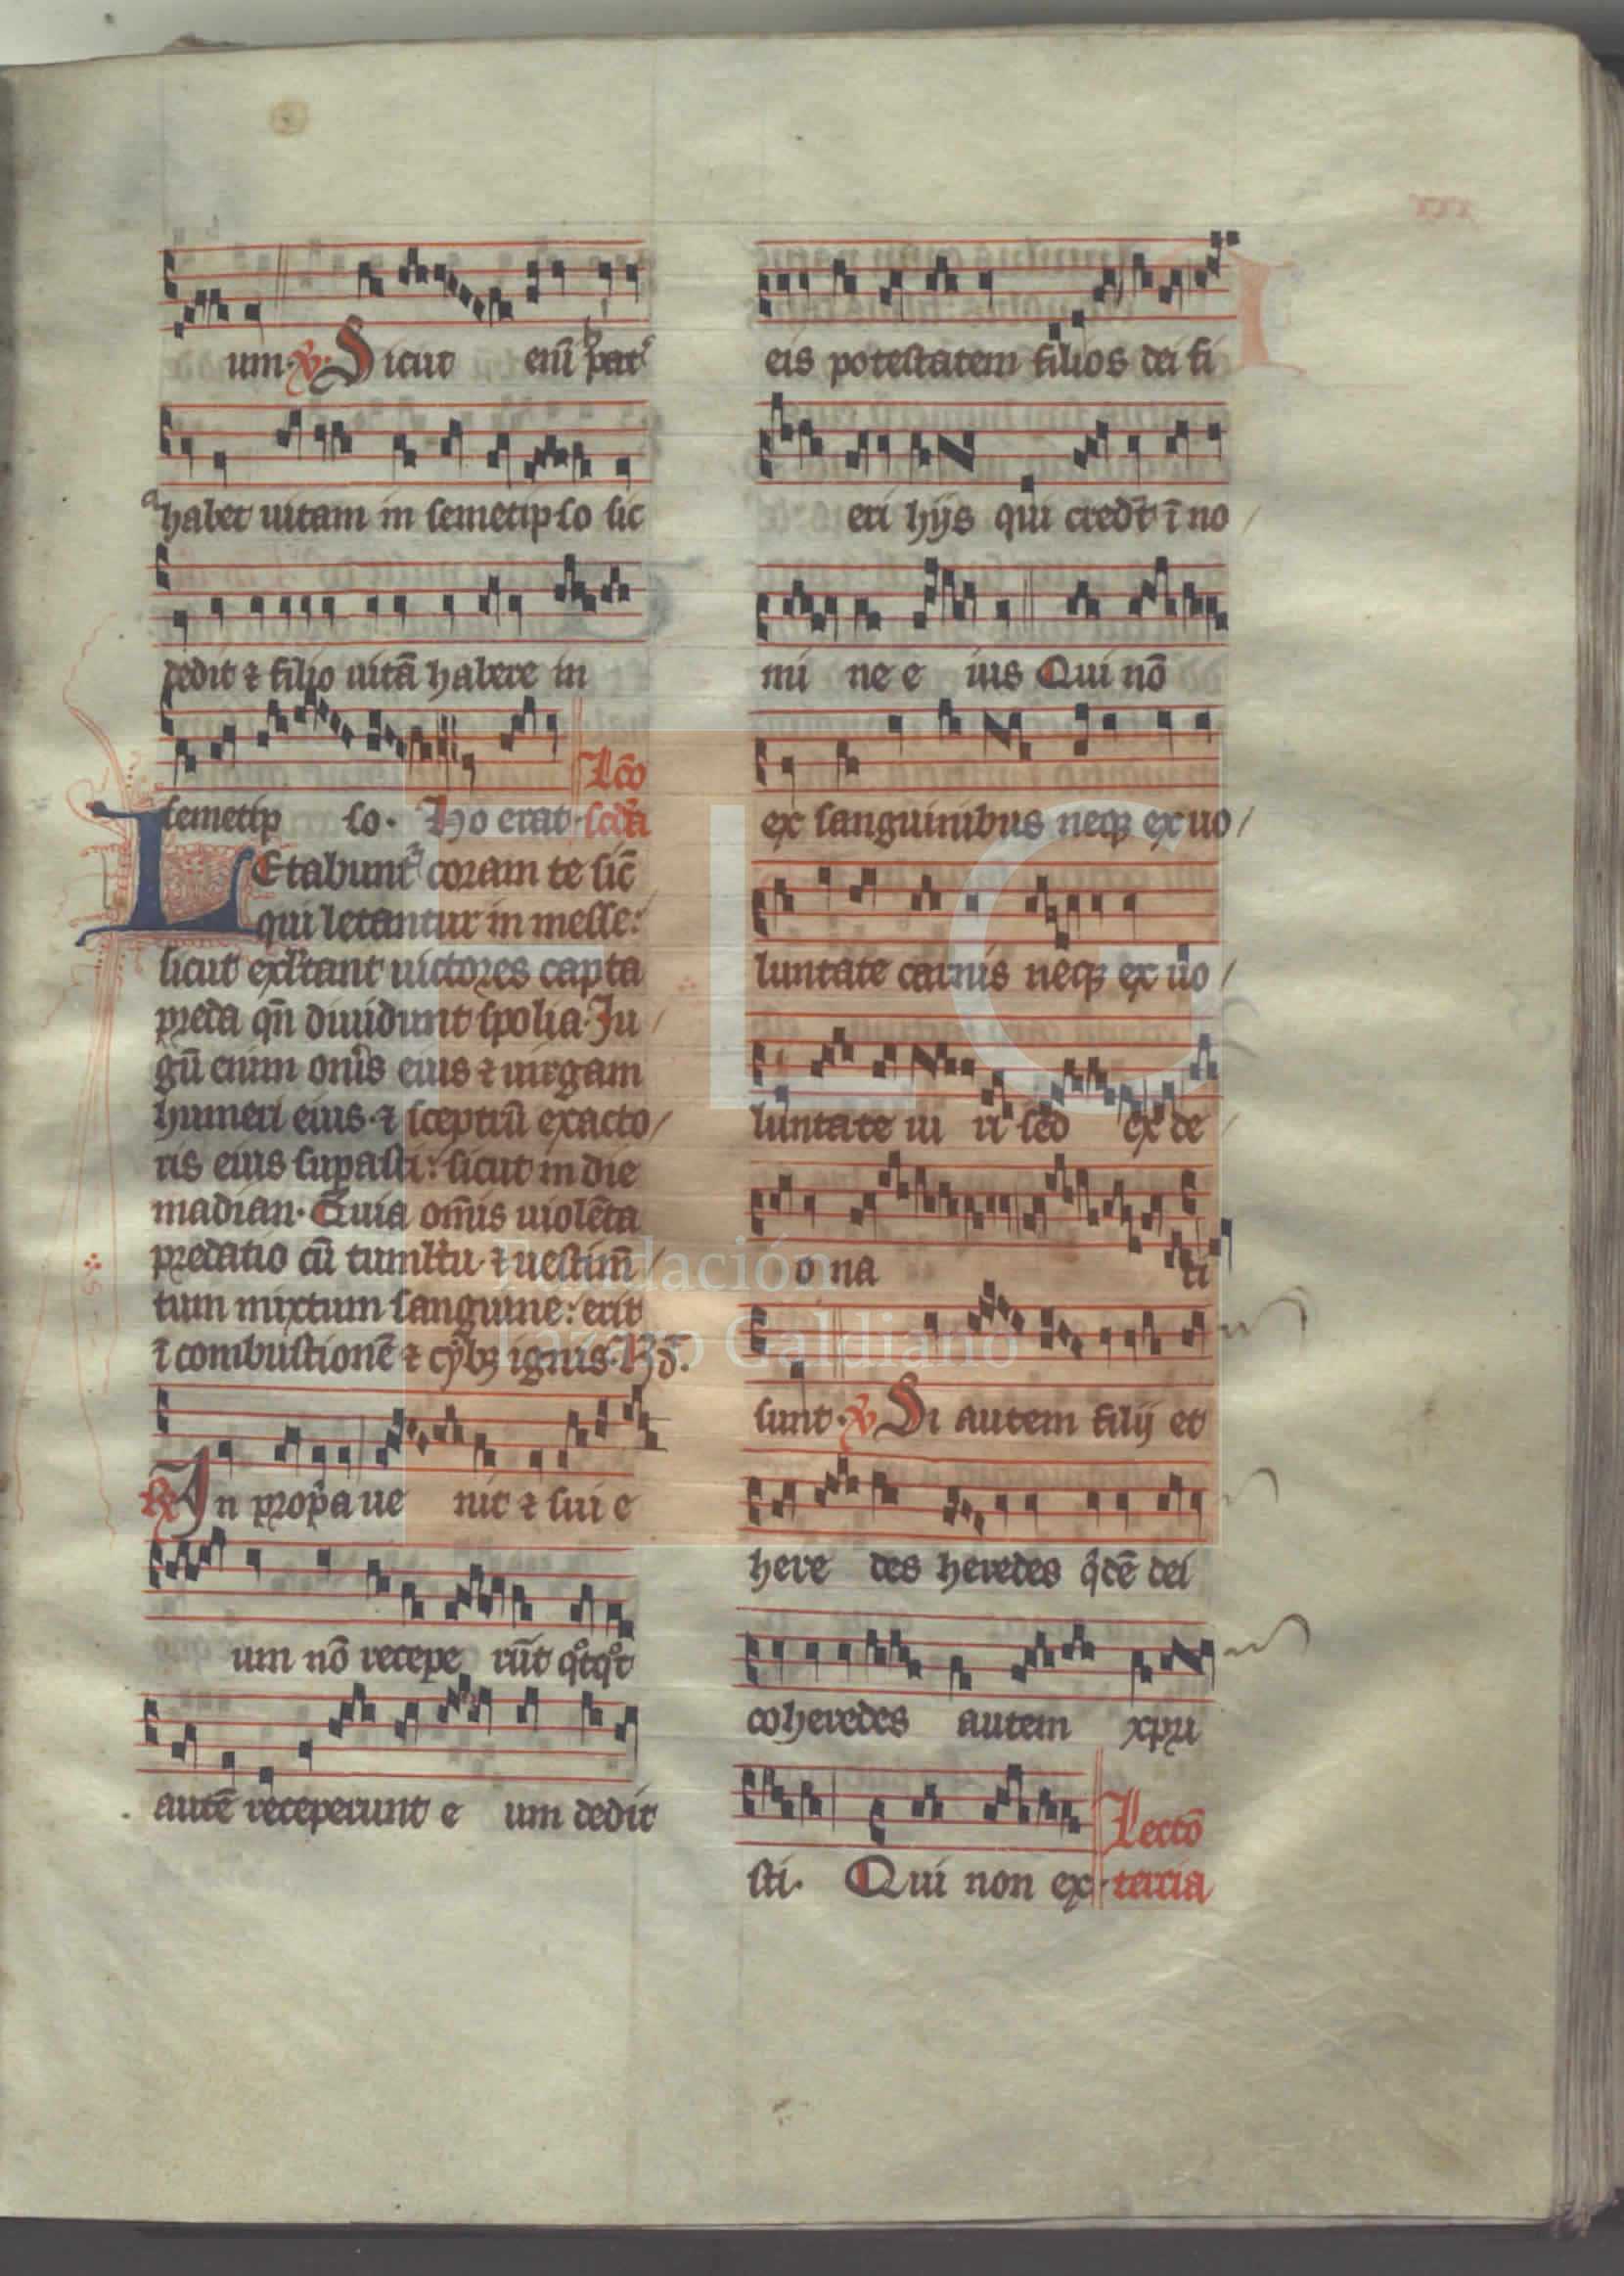 xxx
um. ℣. Sicut enī pat͛
habet uitam in semetipso sic
dedit ⁊ filio uitā habere in
semetip so. Ho erat. Lcō scd̄a
LEtabunt᷑ coram te sic̄
qui letantur in messe:
sicut exl̄tant uictores capta
preda qn̄ diuidunt spolia. Ju
gū enim on͛is eius ⁊ uirgam
humeri eius. ⁊ sceptrū exacto
ris eius sup̱asti: sicut in die
madian. Quia om̄is uiolēta
predatio cū tuml̄tu. ⁊ uestim̄
tum mixtum sanguine: erit
ī combustionē ⁊ cybꝫ ignis.
℟ In prop̱a ue nit ⁊ sui e
um nō recepe rūt qͦtqͦt
autē receperunt e um dedit
eis potestatem filios dei fi
eri hijs qui credūt ī no
mi ne e ius Qui nō
ex sanguinibus neqꝫ ex uo
luntate carnis neqꝫ ex uo
luntate ui ri sed ex de
o na ti
sunt. ℣ Si autem filij et
here des heredes qͥdē dei
coheredes autem xpri
sti. Qui non ex. Lectō
tercia
FLG
Fundación
Lázaro Galdiano